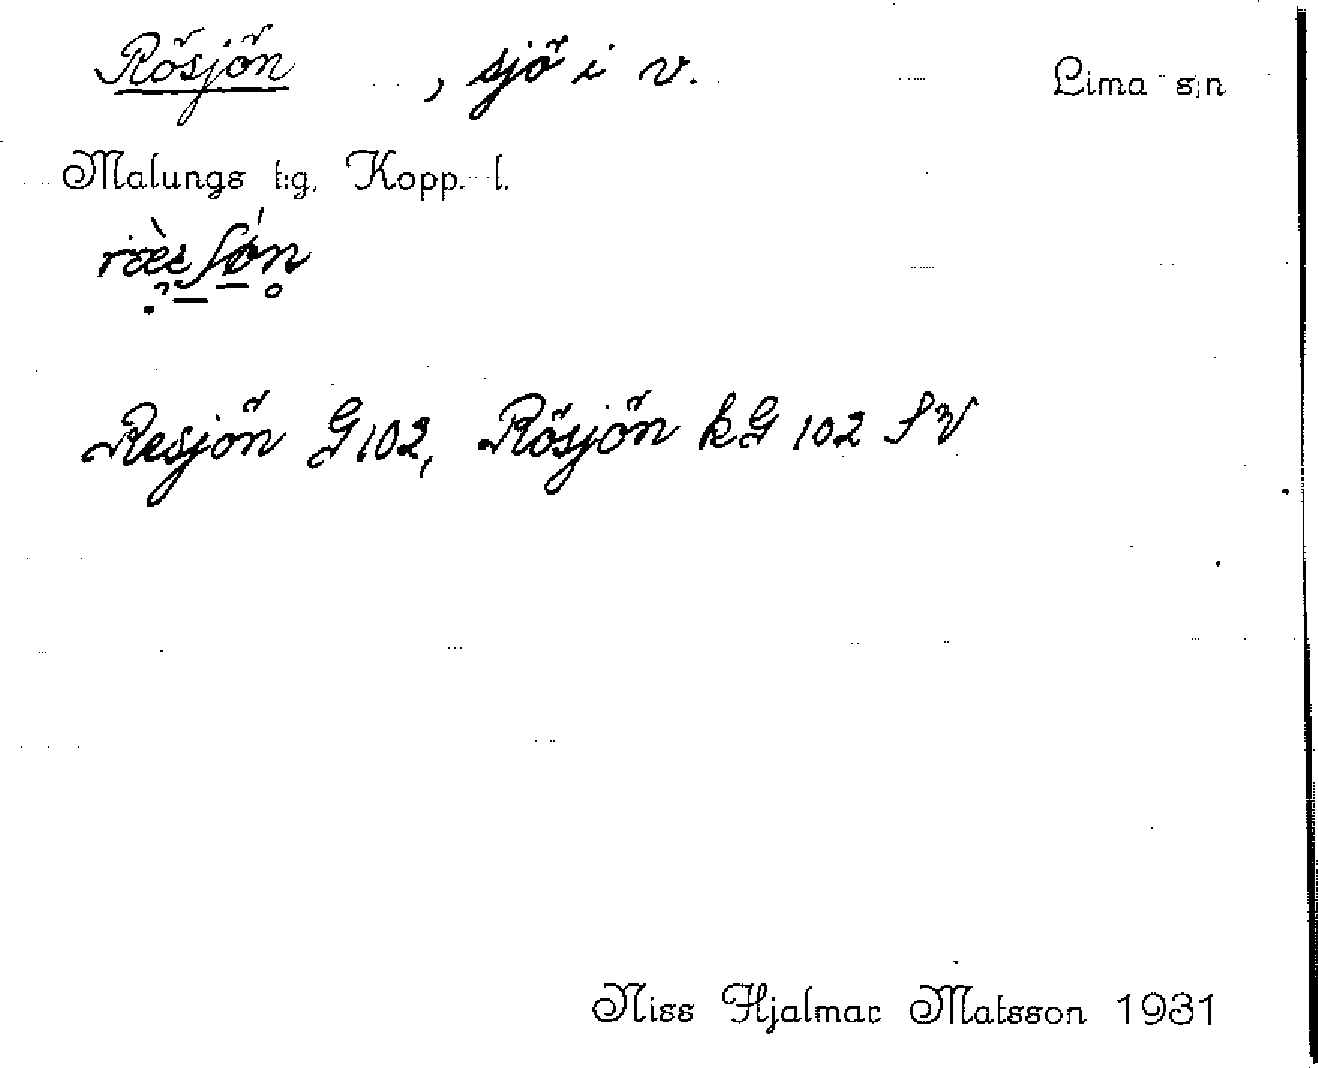 Rösjön , sjö i v. Lima s:n
Malungs t:g, Kopp. l.
Resjön G 102, Rösjön kG 102 SV
Niss Hjalmar Matsson 1931